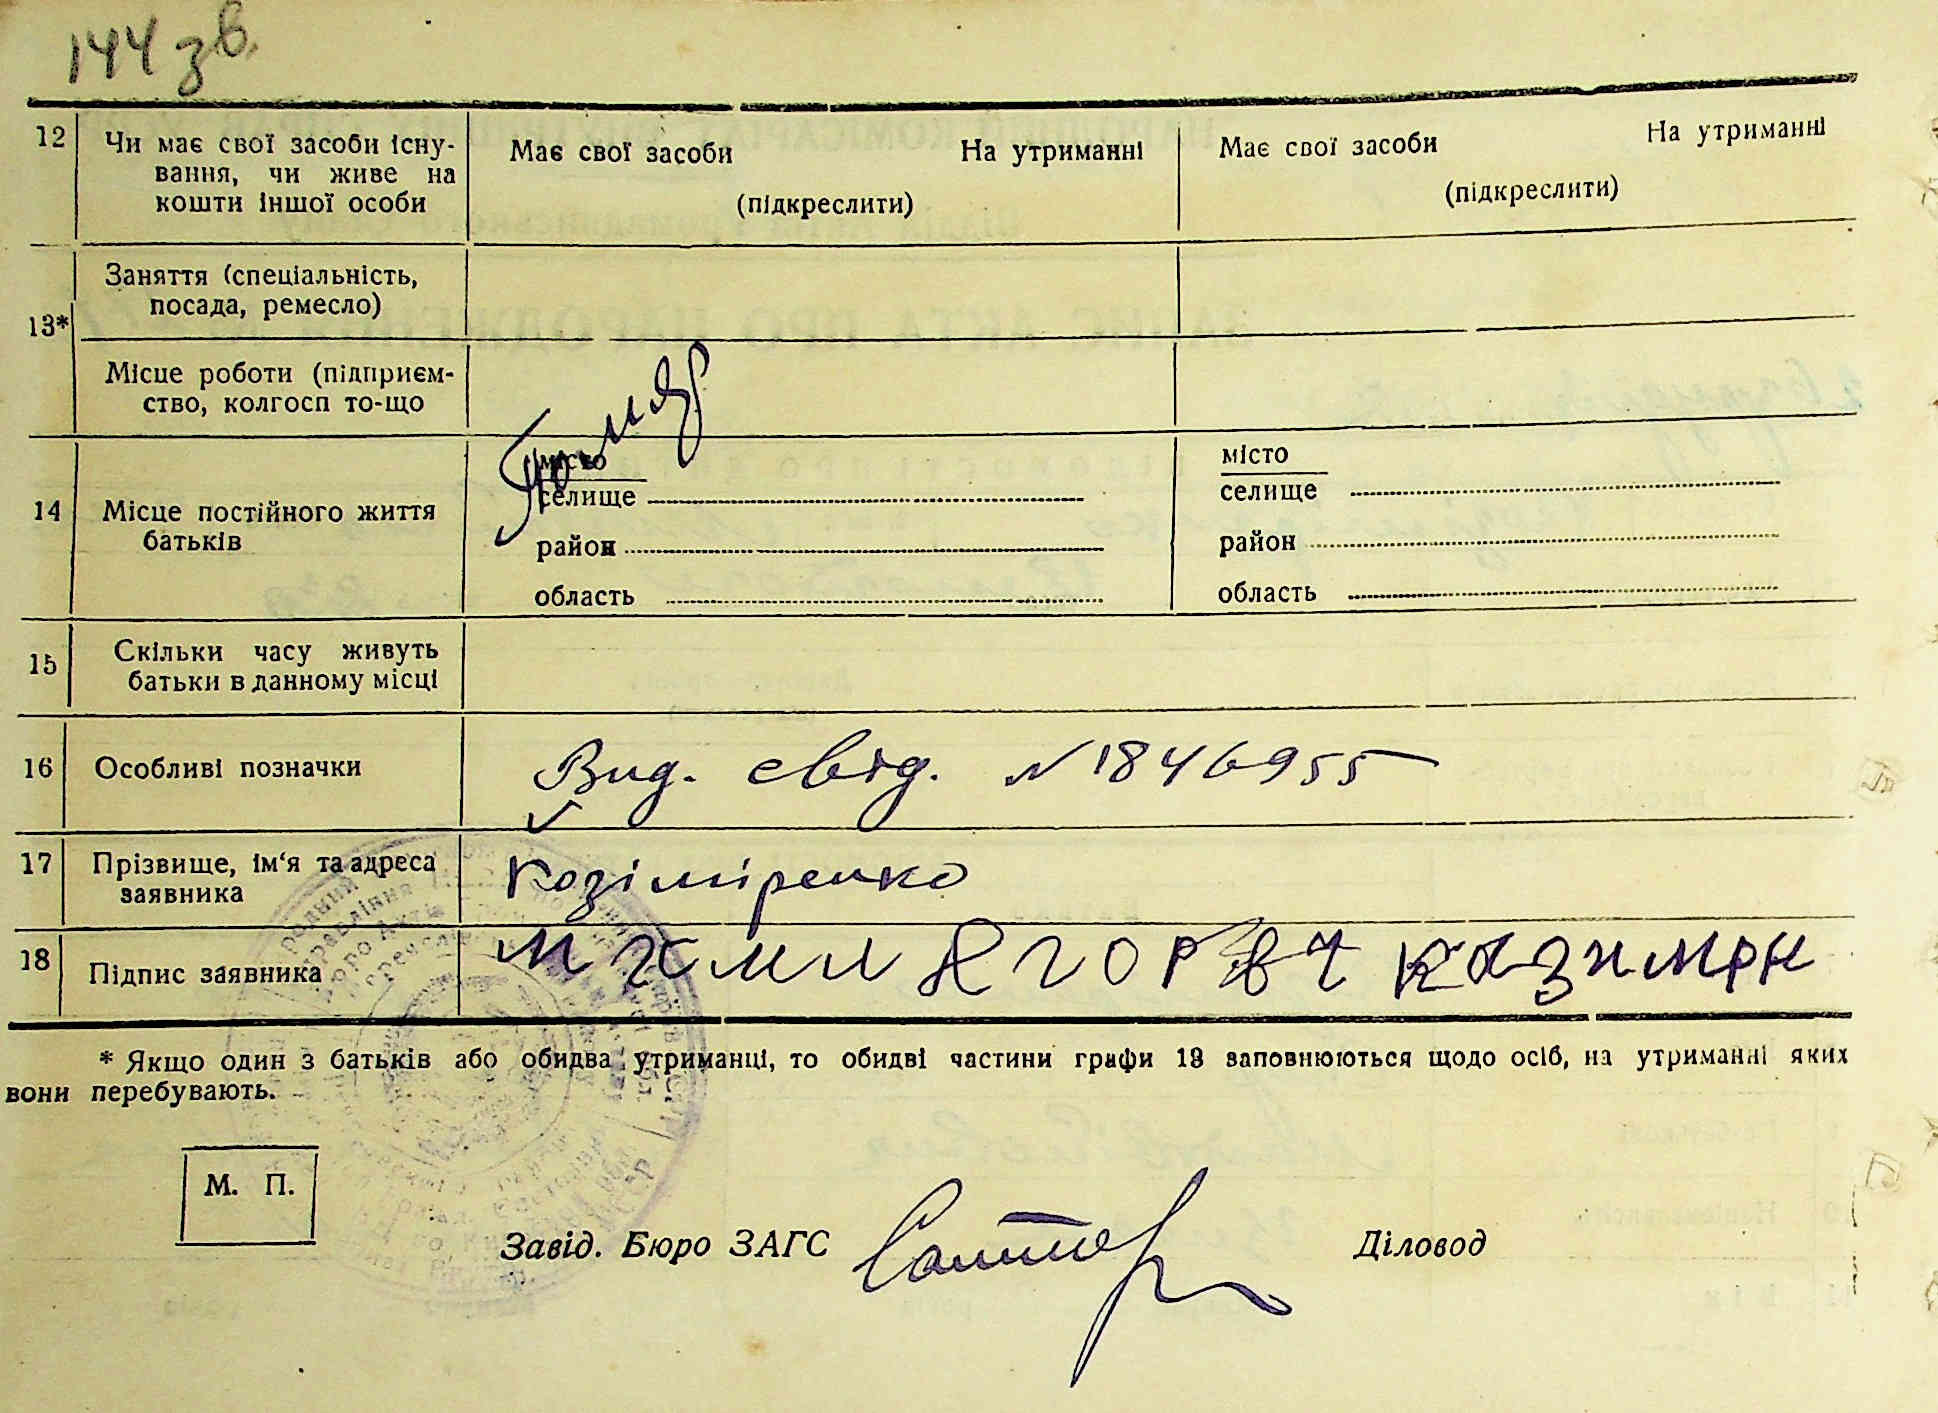 144 зв.
12 Чи має свої засоби існу-
вання, чи живе на
кошти іншої особи
Має свої засоби На утриманні
(підкреслити)
Має свої засоби На утриманні
(підкреслити)
13*
Заняття (спеціальність,
посада, ремесло)
Місце роботи (підприєм-
ство, колгосп то-що
14 Місце постійного життя
батьків
місто
селище
район
область
місто
селище
район
область
15 Скільки часу живуть
батьки в данному місці
16 Особливі позначки
Вид. свід. № 1846955
17 Прізвище, ім'я та адреса
заявника
Козіміренко
18 Підпис заявника
* Якщо один з батьків або обидва утриманці, то обидві частини графи 13 заповнюються щодо осіб, на утриманні яких
вони перебувають.
М. П.
Завід. Бюро ЗАГС
Діловод